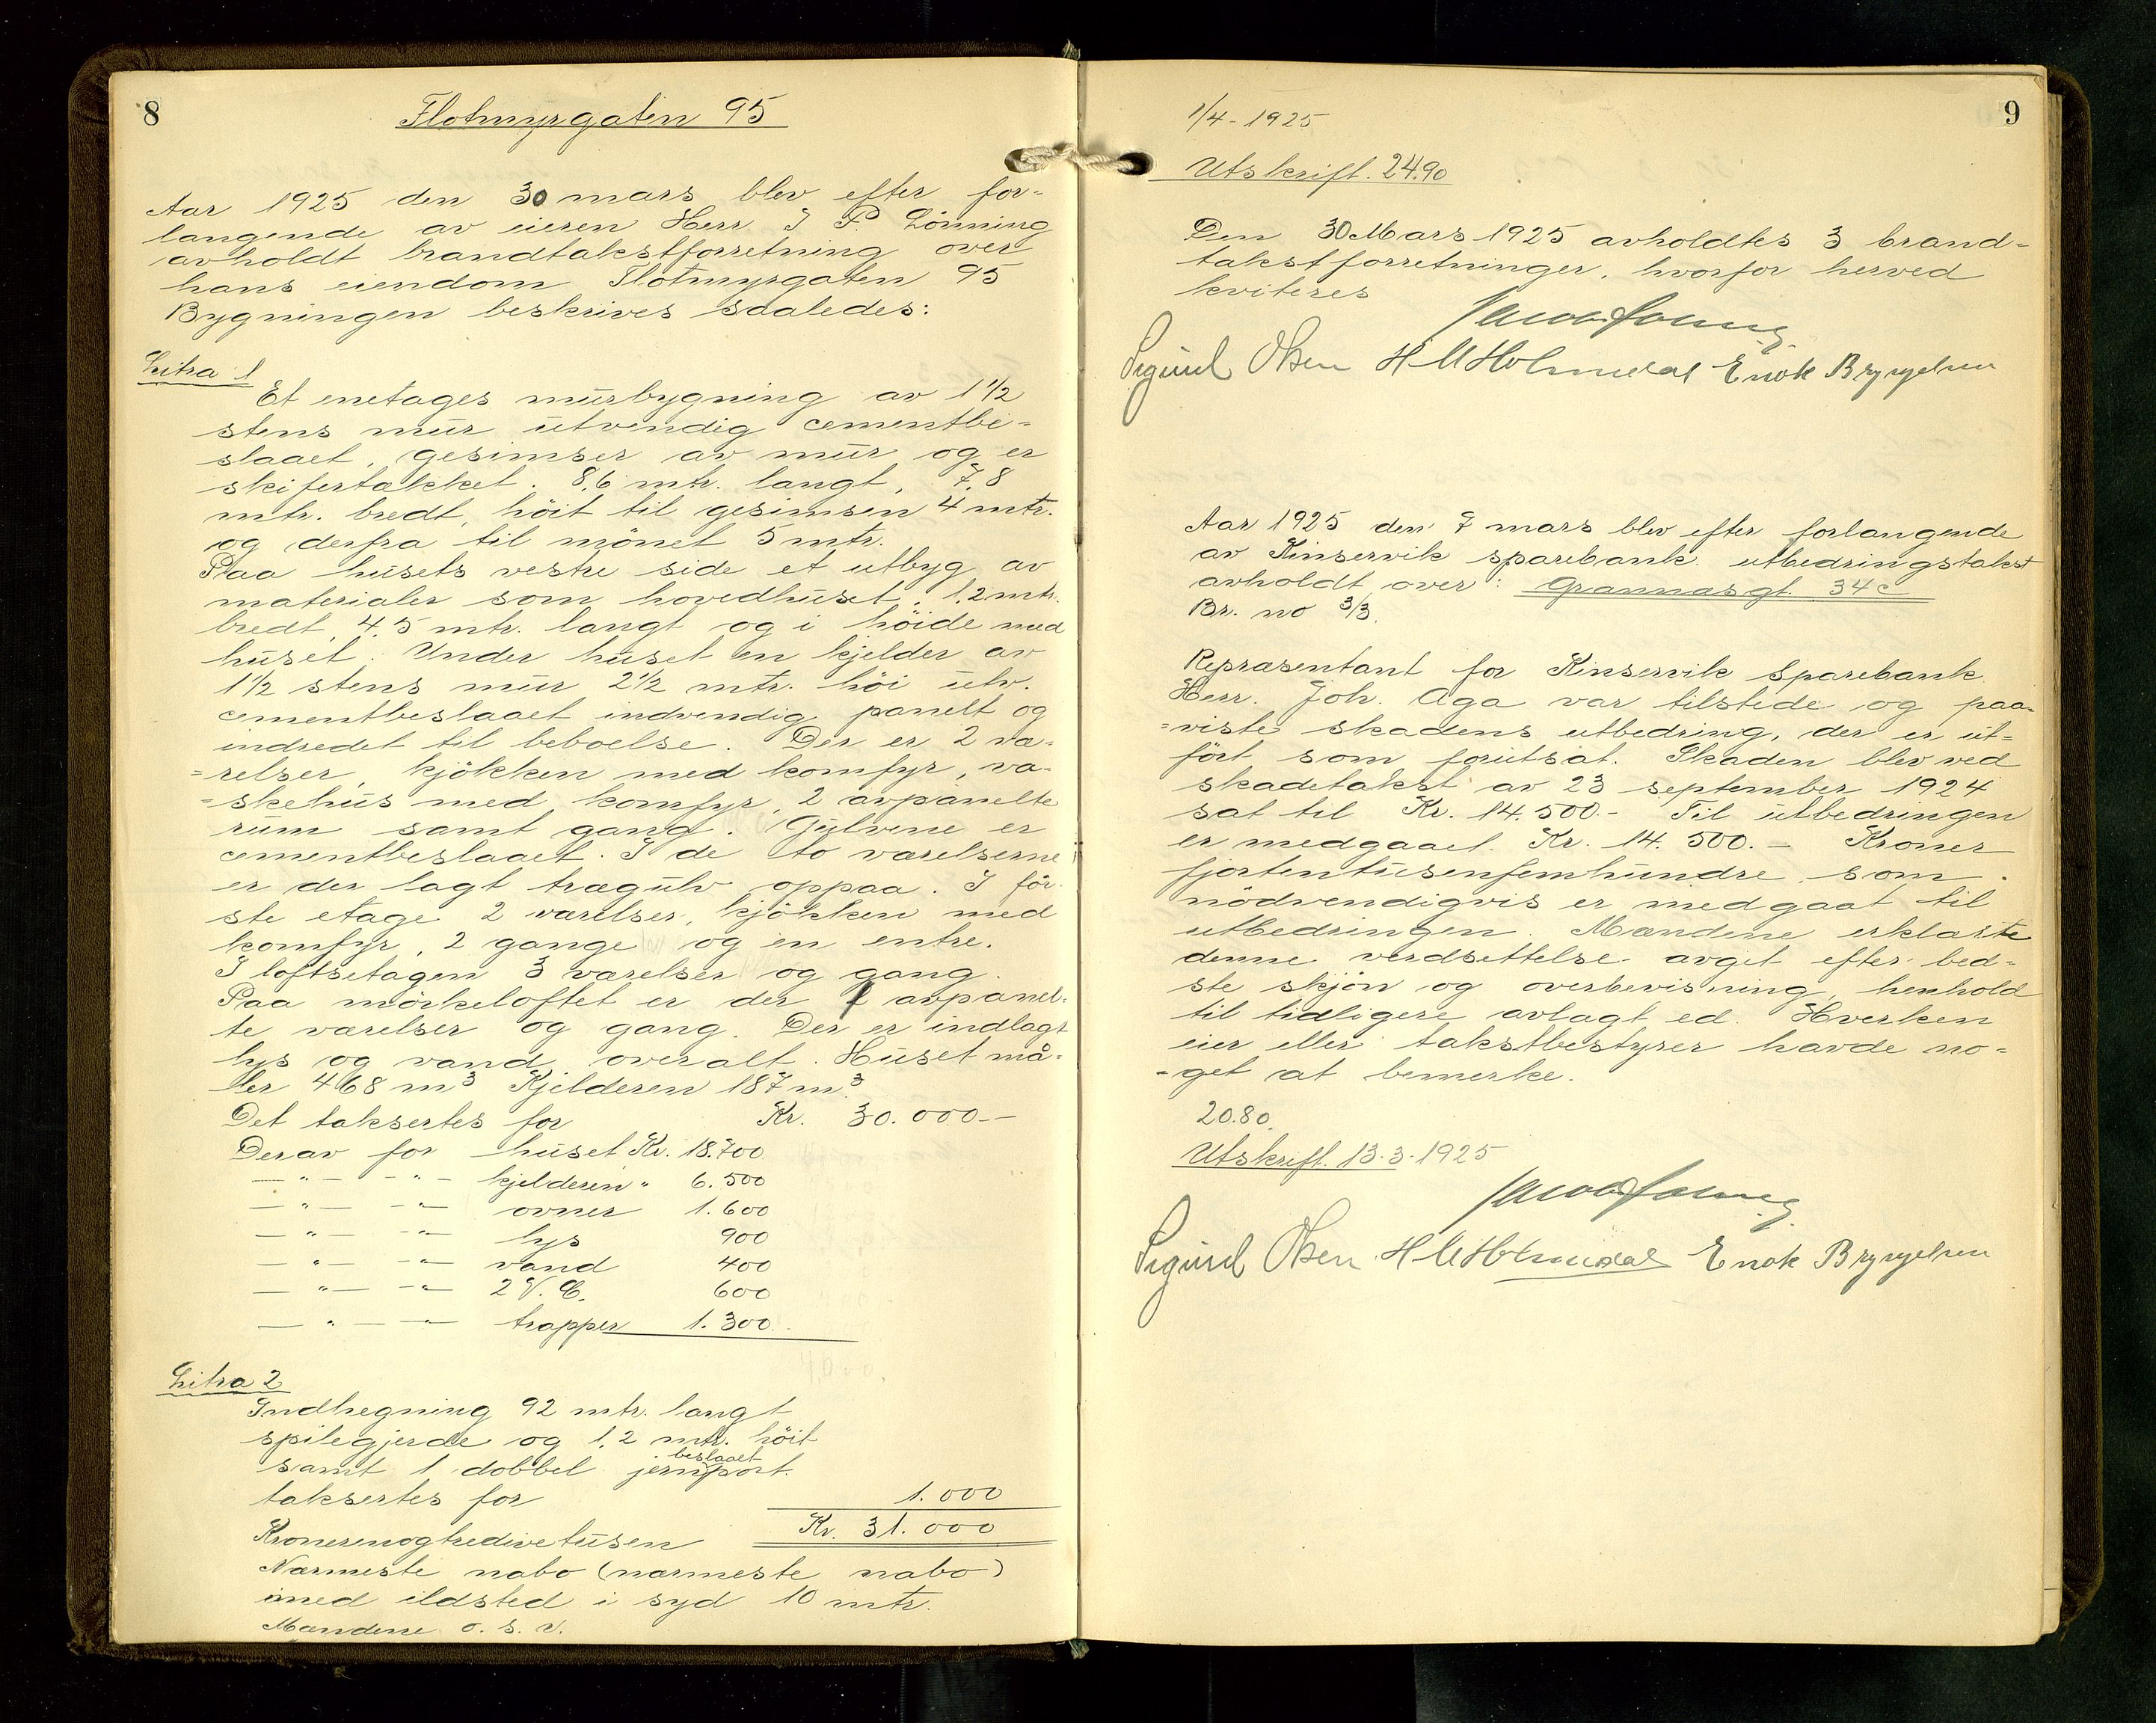 8
Flotmyrgaten 95
Aar 1925 den 30 mars blev efter for=
langende av eieren Herr J P. Lönning
avholdt brandtakstforretning over
hans eiendom Flotmyrgaten 95
Bygningen beskrives saaledes:
Litra 1
Et enetages murbygning av 1 1/2
stens mur utvendig cementbe=
slaaet, gesimser av mur og er
skifertækket. 8,6 mtr. langt, 7,8
mtr. bredt, höit til gesimsen 4 mtr.
og derfra til mönet 5 mtr.
Paa husets vestre side et utbyg av
materialer som hovedhuset, 1,2 mtr.
bredt, 4,5 mtr. langt og i höide med
huset. Under huset en kjelder av
1 1/2 stens mur 2 1/2 mtr. höi utv.
cementbeslaaet indvendig panelt og
indredet til beboelse. Der er 2 væ=
=relser, kjökken med komfyr, va=
=skehus med komfyr, 2 avpanelte
rum samt gang. Gulvene er
cementbeslaaet. I de to værelserne
er der lagt trægulv oppaa. I för-
ste etage 2 værelser, kjökken med
komfyr, 2 gange og en entre.
I loftsetagen 3 værelser og gang.
Paa mörkeloftet er der 2 avpanel=
te værelser og gang. Der er indlagt
lys og vand overalt. Huset må=
ler 468 m3 Kjelderen 187 m3
Det taksertes for Kr. 30.000 —
Derav for huset Kr. 18.700
— " — — " — kjelderen " 6.500
— " — — " — ovner 1.600
— " — — " — lys 900
— " — — " — vand 400
— " — — " — 2 V. C. 600
— " — — " — trapper 1.300
Litra 2
Indhegning 92 mtr. langt
spilegjerde og 1,2 mtr. höit
beslaaet
samt 1 dobbel jernport.
taksertes for 1.000
Kronerenogtredivetusen Kr. 31.000
Nærmeste nabo (nærmeste nabo)
med ildsted i syd 10 mtr.
Mændene o. s. v.
9
1/4 - 1925
Utskrift. 24.90
Den 30 Mars 1925 avholdtes 3 brand-
takstforretninger, hvorfor herved
kviteres
Sigurd Olsen H M Holmedal Enok Bryngelsen
Aar 1925 den 7 mars blev efter forlangende
av Kinservik sparebank utbedringstakst
avholdt over: Grannasgt. 34c
Br. no 3/3.
Repræsentant for Kinservik Sparebank
Herr. Joh. Aga var tilstede og paa-
=viste skadens utbedring, der er ut=
fört som forutsat. Skaden blev ved
skadetakst av 23 september 1924
sat til Kr. 14.500.- Til utbedringen
er medgaaet Kr. 14.500. - Kroner
fjortentusenfemhundre som
nödvendigvis er medgaat til
utbedringen. Mændene erklærte
denne verdsettelse avget efter bed=
ste skjön og overbevisning, henhold
til tidligere avlagt ed. Hverken
eier eller takstbestyrer havde no=
=get at bemerke.
20.80
Utskrift. 13-3-1925
Sigurd Olsen H M Holmedal Enok Bryngelsen